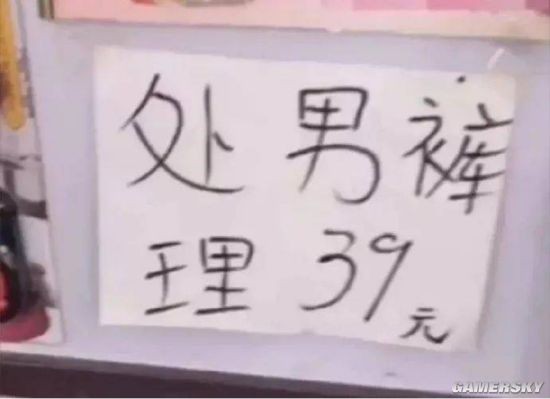 处男裤
理39元
GAMERSKY